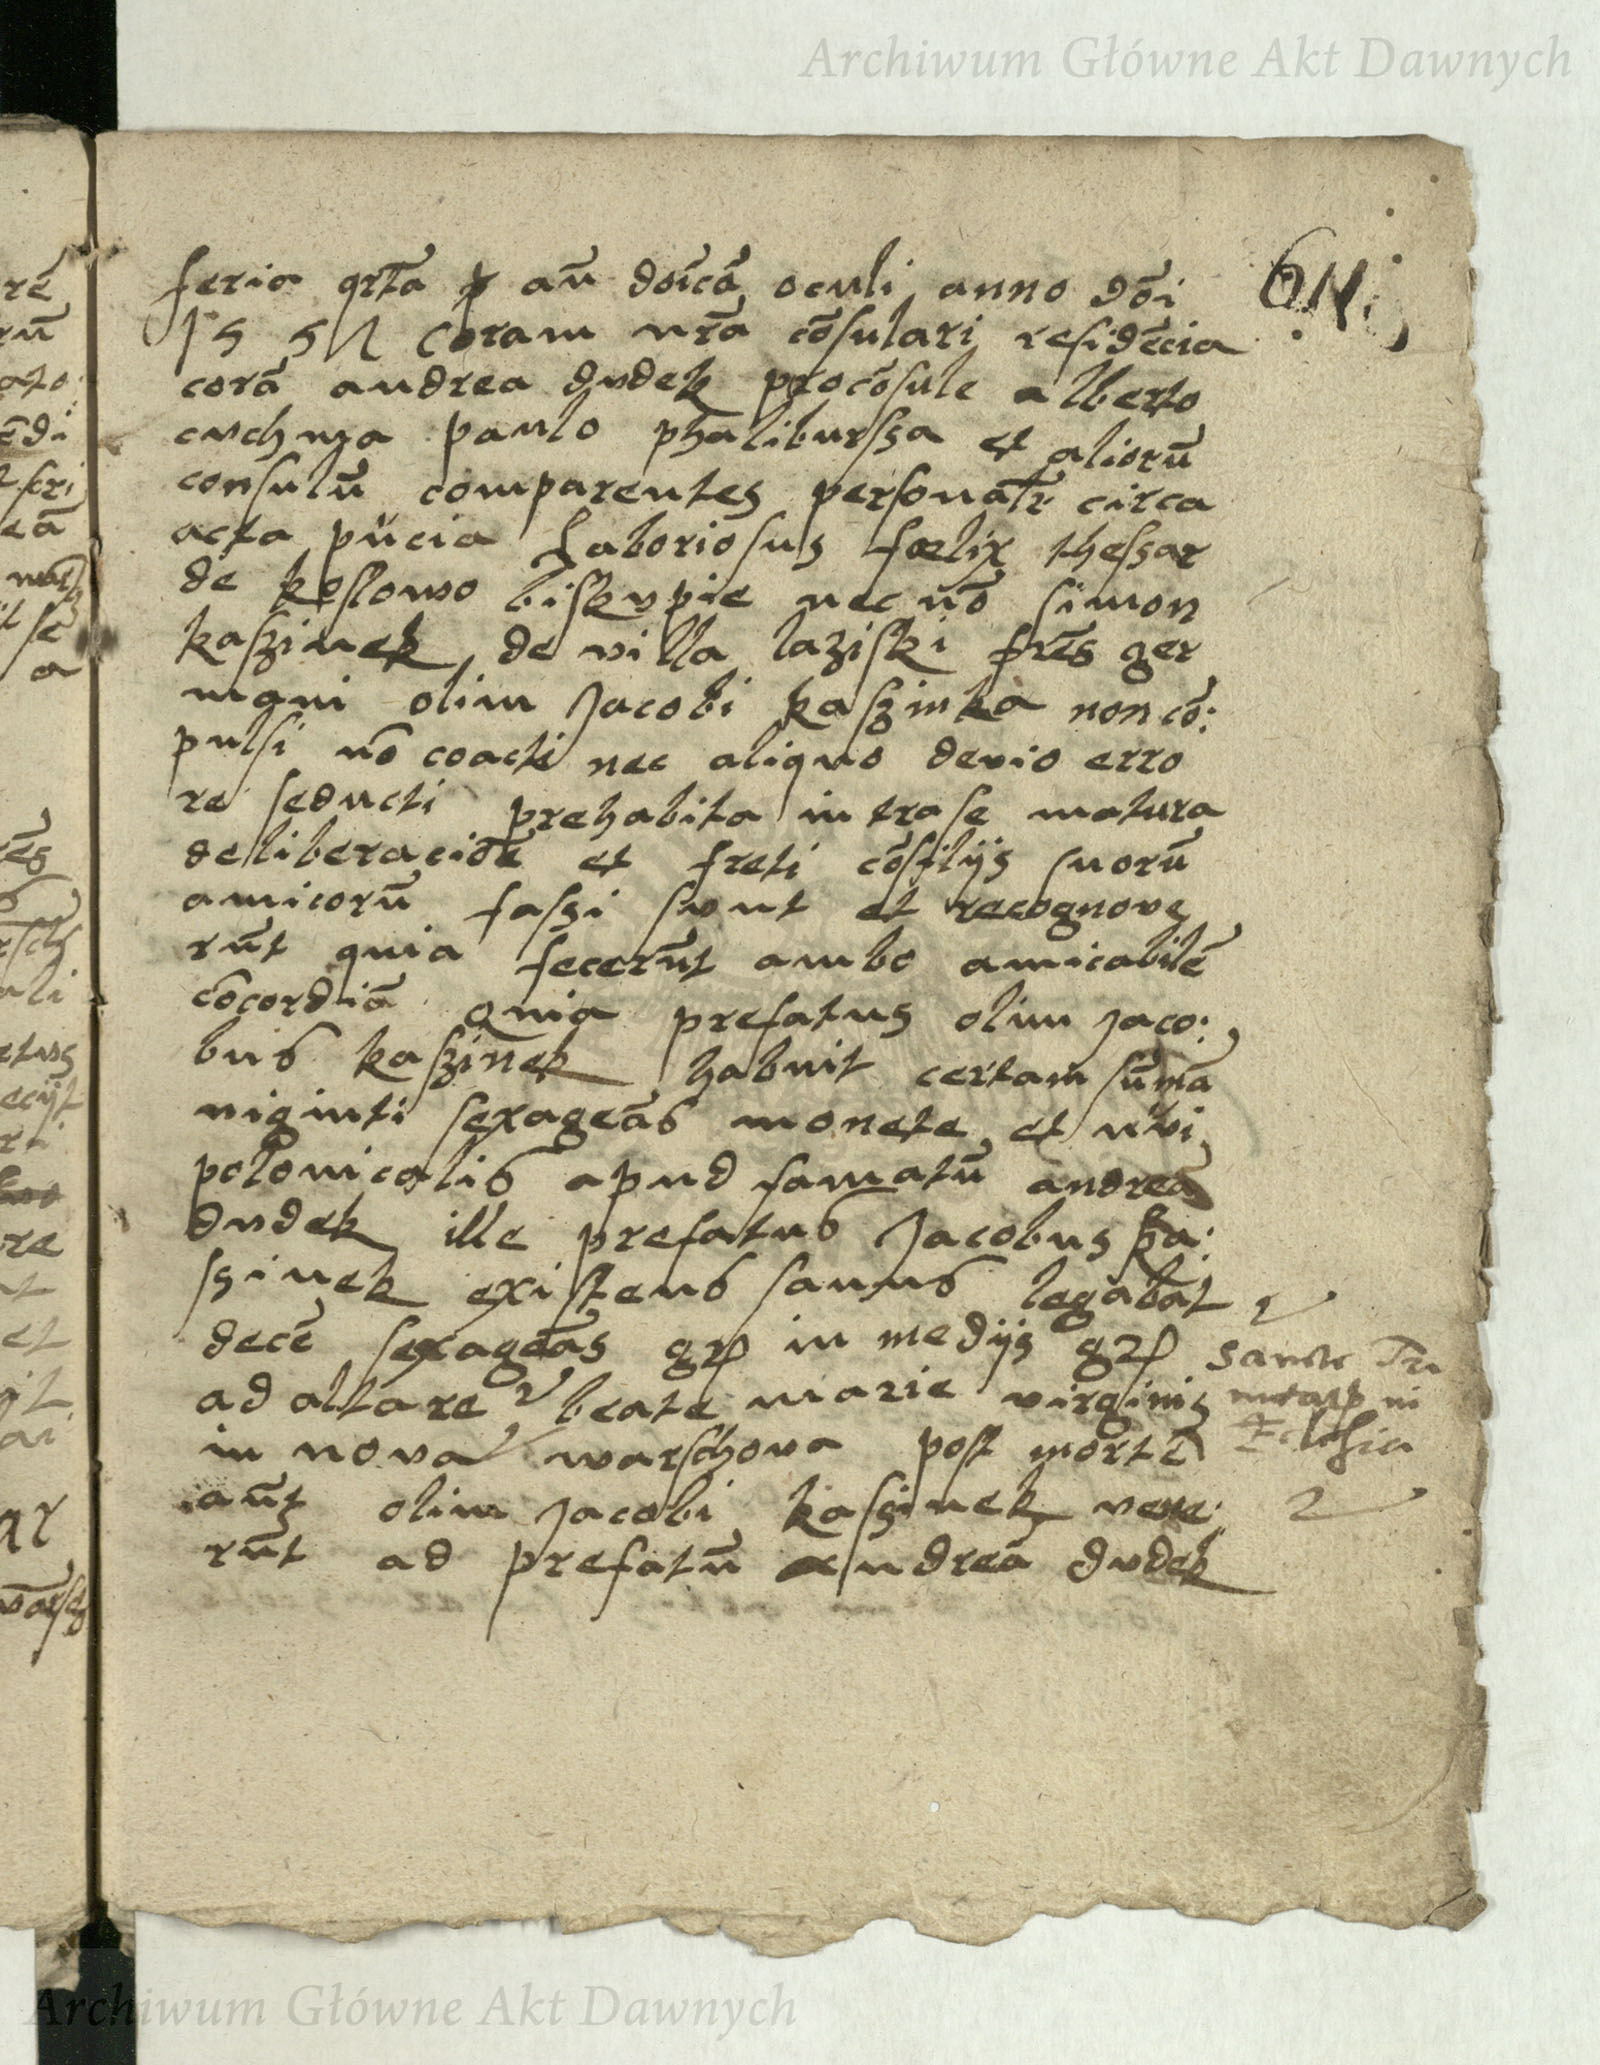 Archiwum Główne Akt Dawnych
feria qrta añ doīcā oculi anno dōi
coram nrā cōsulari residēcia
corā andrea dudek procōsule alberto
paulo phaliburssa et aliorū
consulū comparentes personalr circa
acta Laboriosus fœlix thessar
de koslowo biskupie nec nō simon
kaszinek de villa laziski frēs ger
mani olim Jacobi kaszinka non cō:
pulsi nō coacti nec aliquo devio erro
re seducti prehabita intra se matura
deliberaciōe et freti cōsilijs suorū
amicorū fassi sunt et recognove
rūt quia fecerūt ambo amicabilē
cōcordiā Quia prefatus olim Jaco:
bus kaszinek habuit certam sūmā
viginti sexageās monete et
polonicalis apud famatū andreā
dudek ille prefatus Jacobus ka:
ssinek existens sanus legabat
decē sexageās in medijs
ad altare beate marie virginis
in nova warschova post mortē
aūt olim Jacobi kassinek vene:
rūt ad prefatū andreā dudek
Sancte
Archiwum Główne Akt Dawnych